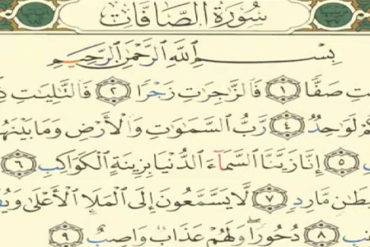 سُورَةُ الصَّافَّاتِ
بِسْمِ اللَّهِ الرَّحْمَٰنِ الرَّحِيمِ
صَفًّا ١ فَالزَّاجِرَاتِ زَجْرًا ٢ فَالتَّالِيَاتِ
لَوَاحِدٌ ٤ رَّبُّ السَّمَاوَاتِ وَالْأَرْضِ وَمَا بَيْنَهُمَا
٥ إِنَّا زَيَّنَّا السَّمَاءَ الدُّنْيَا بِزِينَةٍ الْكَوَاكِبِ ٦
مَّارِدٍ ٧ لَّا يَسَّمَّعُونَ إِلَى الْمَلَإِ الْأَعْلَىٰ
٨ دُحُورًا وَلَهُمْ عَذَابٌ وَاصِبٌ ٩